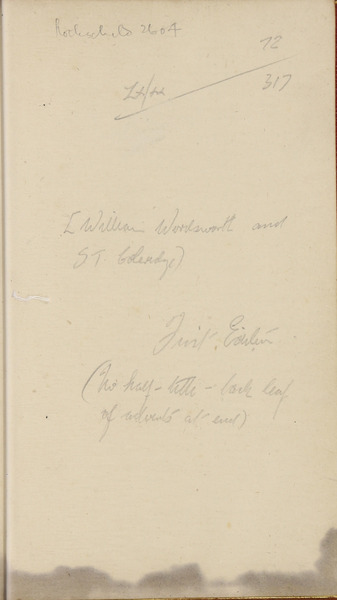 Rothschild 2604
72
317
[William Wordsworth and
S.T. Coleridge]
First Edition
(No half-title - back leaf
of adverts at end)